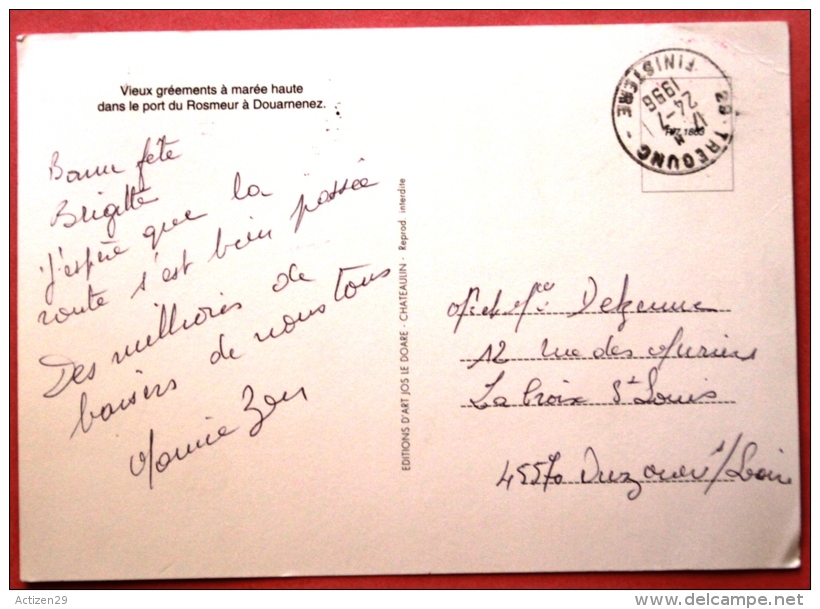 Vieux gréements à marée haute
dans le port du Rosmeur à Douarnenez.
Bonne fête
Brigitte
J'espère que la
route s'est bien passée
Des milliers de
baisers de nous tous
EDITIONS D'ART JOS LE DOARE - CHATEAULIN - Reprod. interdite
29 TREGUNC
17 H
24-7
1956
FINISTERE
M. et Me
12 rue des
La Croix St Louis
45570 Ouzouer s/Loire
Actizen29
delcampe.net